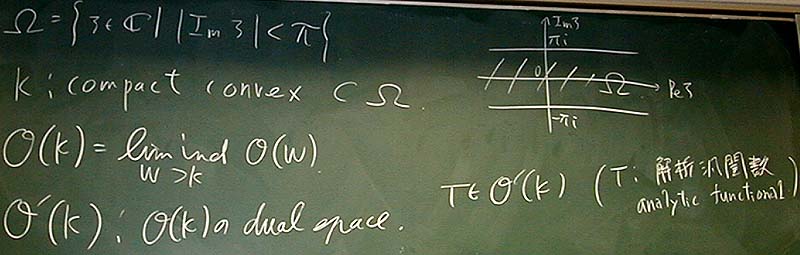 Ω = {ʒ ∈ ℂ | |Im ʒ| < π}
K : compact convex ⊂ Ω.
O(K) = lim ind O(W)
W ⊃ K
O'(K) : O(K) の dual space.
Im ʒ
πi
0
Ω
Re ʒ
-πi
T ∈ O'(K) (T : 解析汎関数
analytic functional)